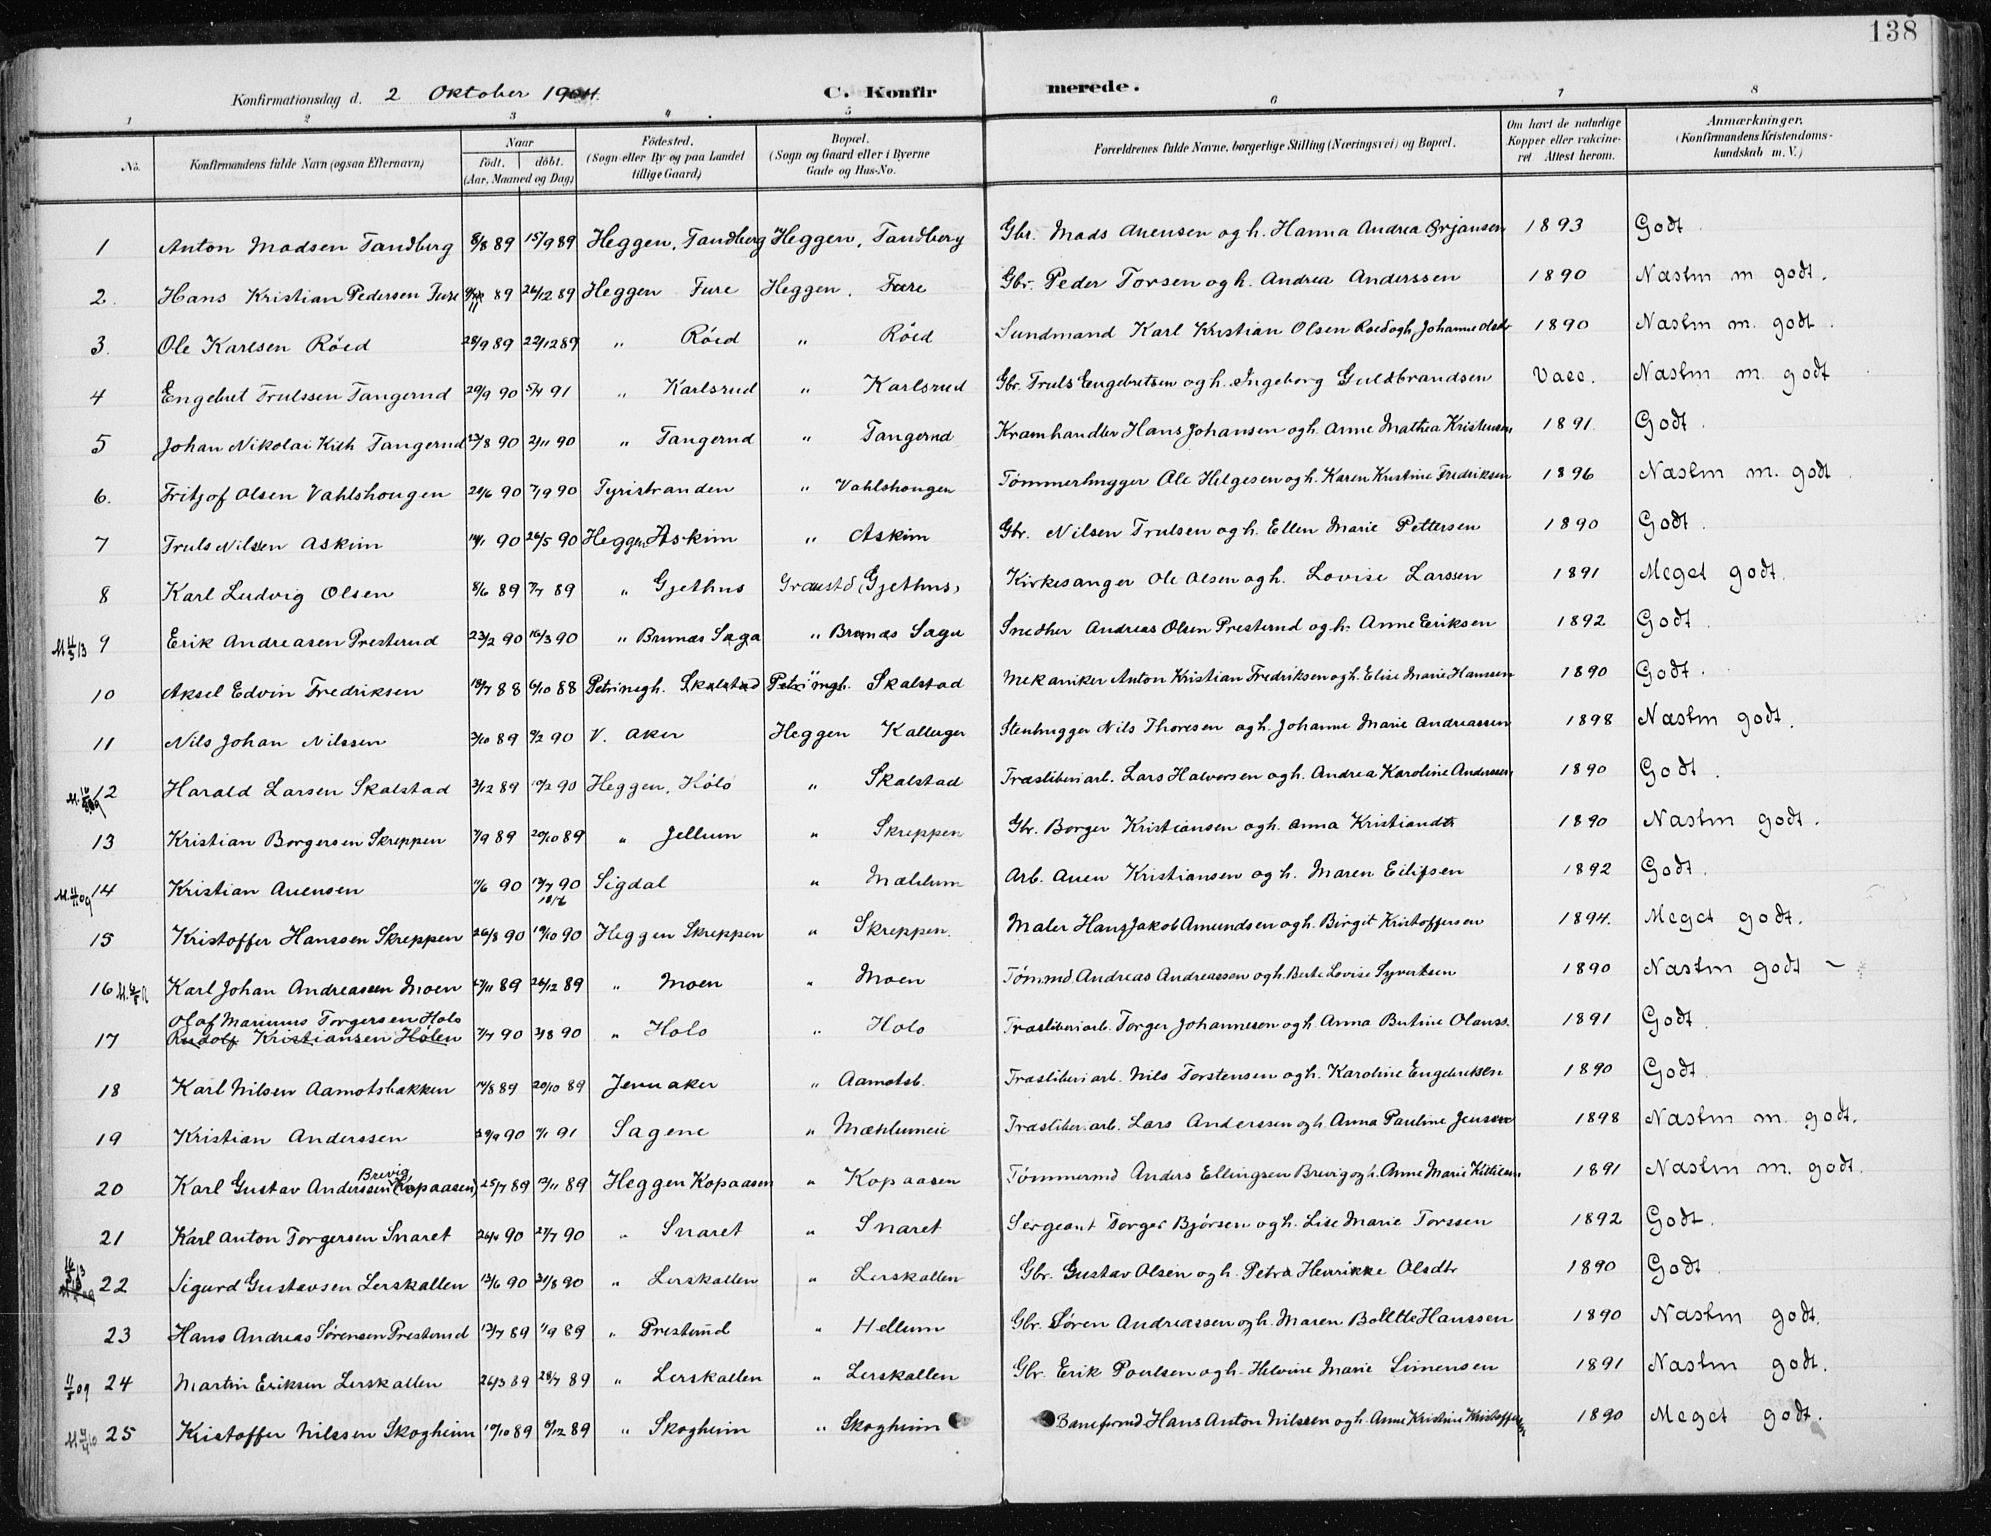 138
Konfirmationsdag d. 2 Oktober 1904. C. Konfir merede.
1 2 3 4 5 6 7 8
No. Konfirmandens fulde Navn (ogsaa Efternavn) Naar födt. döbt. (Aar, Maaned og Dag) Födested. (Sogn eller By og paa Landet tillige Gaard) Bopæl. (Sogn og Gaard eller i Byerne Gade og Hus-No. Forældrenes fulde Navne, borgerlige Stilling (Næringsvei) og Bopæl. Om havt de naturlige Kopper eller vakcineret Attest herom. Anmærkninger. (Konfirmandens Kristendomskundskab m. V.)
1 Anton Madsen Tandberg 8/8 89 15/9 89 Heggen, Tandberg Heggen, Tandberg Gbr. Mads Auensen og h. Hanna Andrea Ørjansen 1893 Godt.
2. Hans Kristian Pedersen Fure 89 26/12 89 Heggen Fure Heggen, Fure Gbr. Peder Torsen og h. Andrea Anderssen 1890 Næstm m godt.
3. Ole Karlsen Röed 28/9 89 22/12 89 " Röed " Röed Sundmand Karl Kristian Olsen Roed og h. Johanne Olsdr 1890 Næstm m. godt.
4 Engebret Trulssen Tangerud 29/9 90 5/4 91 " Karlsrud " Karlsrud Gbr. Truls Engebretsen og h. Ingeborg Guldbrandsen Vacc. Næstm m. godt
5 Johan Nikolai Tangerud 90 2/11 90 " Tangerud " Tangerud Kramhandler Hans Johansen og h. Anne Mathea Kristensen 1891 Godt.
6. Fritjof Olsen Vahlshougen 20/6 90 7/9 90 Tyristranden " Vahlshougen Tömmerhugger Ole Helgesen og h. Karen Kristine Fredriksen 1896 Næstm m. godt.
7 Truls Nilsen Askim 90 26/5 90 Heggen Askim " Askim Gbr. Nilsen Trulsen og h. Ellen Marie Pettersen 1890 Godt.
8 Karl Ludvig Olsen 8/6 89 7/7 89 " Gjethus (Gjethus) Kirkesanger Ole Olsen og h. Lovise Larssen 1891 Meget godt.
9 Erik Andreasen Presterud 23/2 90 16/3 90 " Brunæs Saga " Brunæs Saga Snedker Andreas Olsen Presterud og h. Anne Eriksen 1892 Godt.
10 Aksel Edvin Fredriksen 18/7 88 6/10 88 Petri megh. Skalstad Petri mgh. Skalstad Mekaniker Anton Kristian Fredriksen og h. Elise Marie Hanssen 1890 Godt.
11 Nils Johan Nilssen 3/10 89 9/2 90 V. Aker Heggen Kallerger Stenhugger Nils Thoresen og h. Johanne Marie Andreassen 1898 Næstm godt.
12 Harald Larsen Skalstad 3/12 89 10/2 90 Heggen, Hölö " Skalstad Træsliberiarb. Lars Halvorsen og h. Andrea Karoline Anderssen 1890 Godt.
13 Kristian Borgersen Skreppen 7/9 89 20/10 89 " Jellum " Skreppen Gbr. Borger Kristiansen og h. Anna Kristiansdtr 1890 Næstm godt.
14 Kristian Auensen 90 13/7 90 Sigdal " Mæhlum Arb. Auen Kristiansen og h. Maren Eilifsen 1892 Godt.
15 Kristoffer Hanssen Skreppen 26/8 90 19/10 90 Heggen Skreppen " Skreppen. Maler Hans Jakob Amundsen og h. Birgit Kristoffersen 1894. Meget godt.
16 Karl Johan Andreassen Moen 89 26/12 89 " Moen " Moen Tömmd. Andreas Andreassen og h. Berte Lovise Syvertsen 1890 Næstm godt
Olaf Marinius Torgersen Holo
17 Rudolf Kristiansen Hólen 3/7 90 3/8 90 " Holo " Holo Træsliberiarb. Torger Johannesen og h. Anna Bertine Olauss. 1891 Godt.
18 Karl Nilsen Aamotsbakken 14/8 89 20/10 89 Jevnaker " Aamotsb. Træsliberiarb. Nils Torstensen og h. Karoline Engebretsen 1890 Godt.
19 Kristian Anderssen 90 91 Sagene " Mæhlumeie Træsliberiarb. Lars Anderssen og h. Anna Pauline Jenssen 1898 Næstm m. godt.
Brevig
20 Karl Gustav Anderssen (Kopaasen) 25/7 89 89 Heggen Kopaasen " Kopaasen Tömmermd Anders Ellingsen Brevig og h. Anne Marie Kittilsen 1891 Næstm m. godt.
21 Karl Anton Torgersen Snaret 26/4 90 27/7 90 " Snaret " Snaret Sergeant Torger Bjórsen og h. Lise Marie Torssen 1892 Godt.
22 Sigurd Gustavsen Lerskallen 13/6 90 31/8 90 " Lerskallen " Lerskallen Gbr. Gustav Olsen og h. Petra Henrikke Olsdtr 1890 Godt.
23 Hans Andreas Sörensen Presterud 13/7 89 1/9 89 " Presterud " Hellum Gbr. Sören Andreassen og h. Maren Bolette Hanssen 1890 Næstm godt.
24 Martin Eriksen Lerskallen 26/3 89 28/7 89 " Lerskallen " Lerskallen Gbr. Erik Poulsen og h. Helvine Marie Simensen 1891 Næstm godt.
25 Kristoffer Nilssen Skogheim 10/10 89 8/12 89 " Skogheim " Skogheim Baneformd. Hans Anton Nilssen og h. Anne Kristine Kristoffersen 1890 Meget godt.